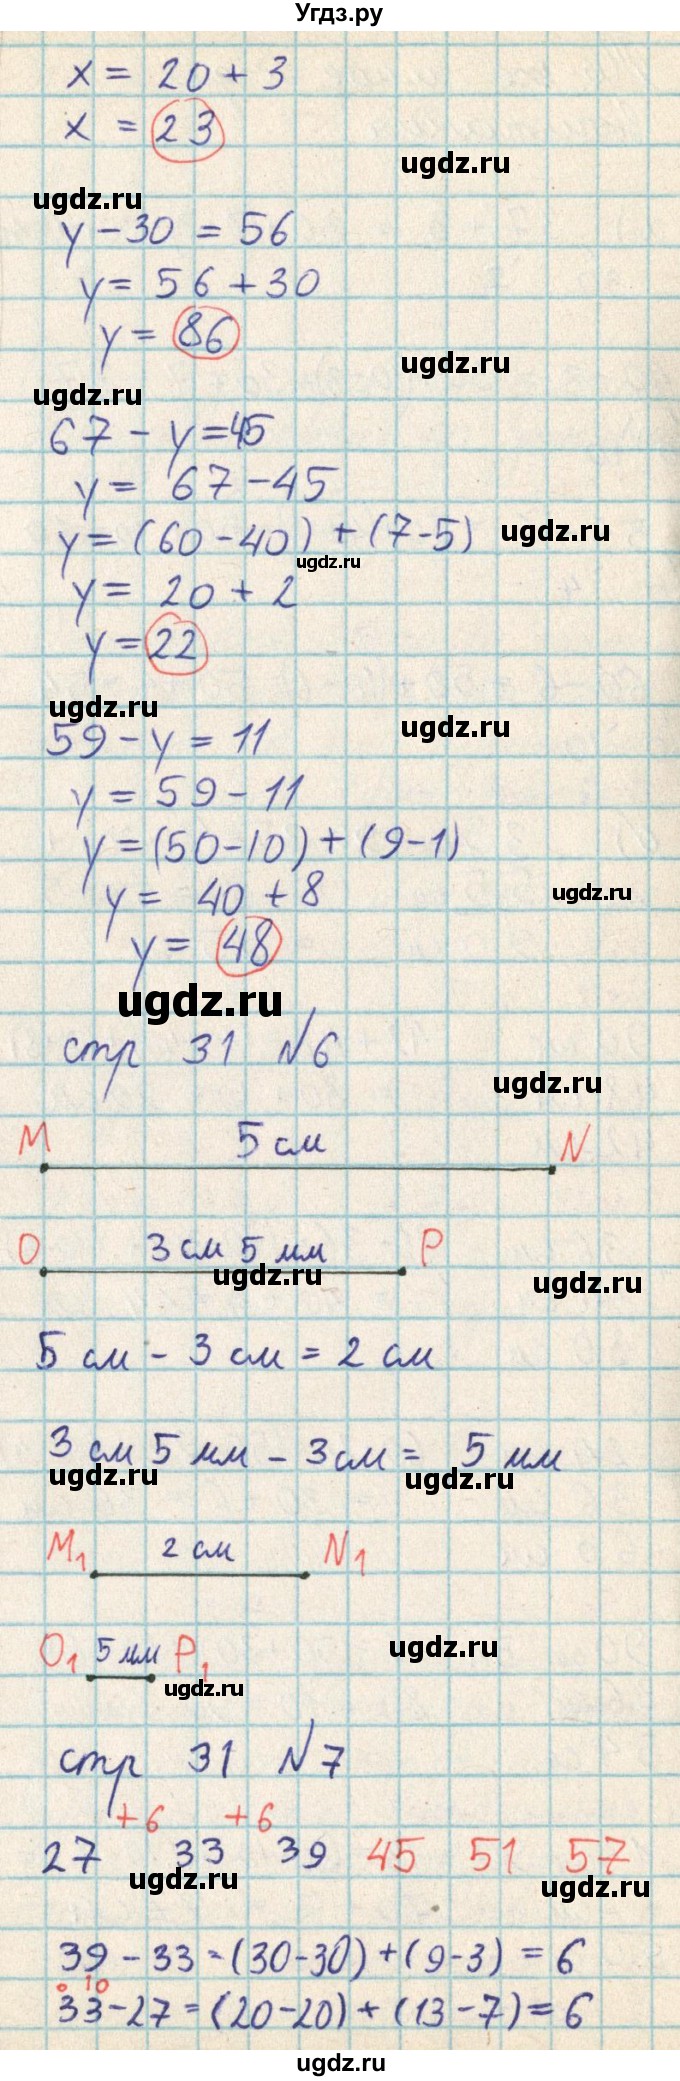 Угдз.ру
x = 20 + 3
x = 23
ugdz.ru
ugdz.ru
y - 30 = 56
y = 56 + 30
y = 86
ugdz.ru
ugdz.ru
67 - y = 45
y = 67 - 45
y = (60 - 40) + (7 - 5)
ugdz.ru
ugdz.ru
y = 20 + 2
y = 22
ugdz.ru
ugdz.ru
59 - y = 11
y = 59 - 11
y = (50 - 10) + (9 - 1)
y = 40 + 8
ugdz.ru
y = 48
ugdz.ru
стр 31 №6
ugdz.ru
M 5 см N
O 3 см 5 мм P
ugdz.ru
ugdz.ru
5 см - 3 см = 2 см
3 см 5 мм - 3 см = 5 мм
ugdz.ru
ugdz.ru
M1 2 см N1
O1 5 мм P1
ugdz.ru
ugdz.ru
стр 31 №7
+6 +6
27 33 39 45 51 57
ugdz.ru
ugdz.ru
39 - 33 = (30 - 30) + (9 - 3) = 6
10
33 - 27 = (20 - 20) + (13 - 7) = 6
ugdz.ru